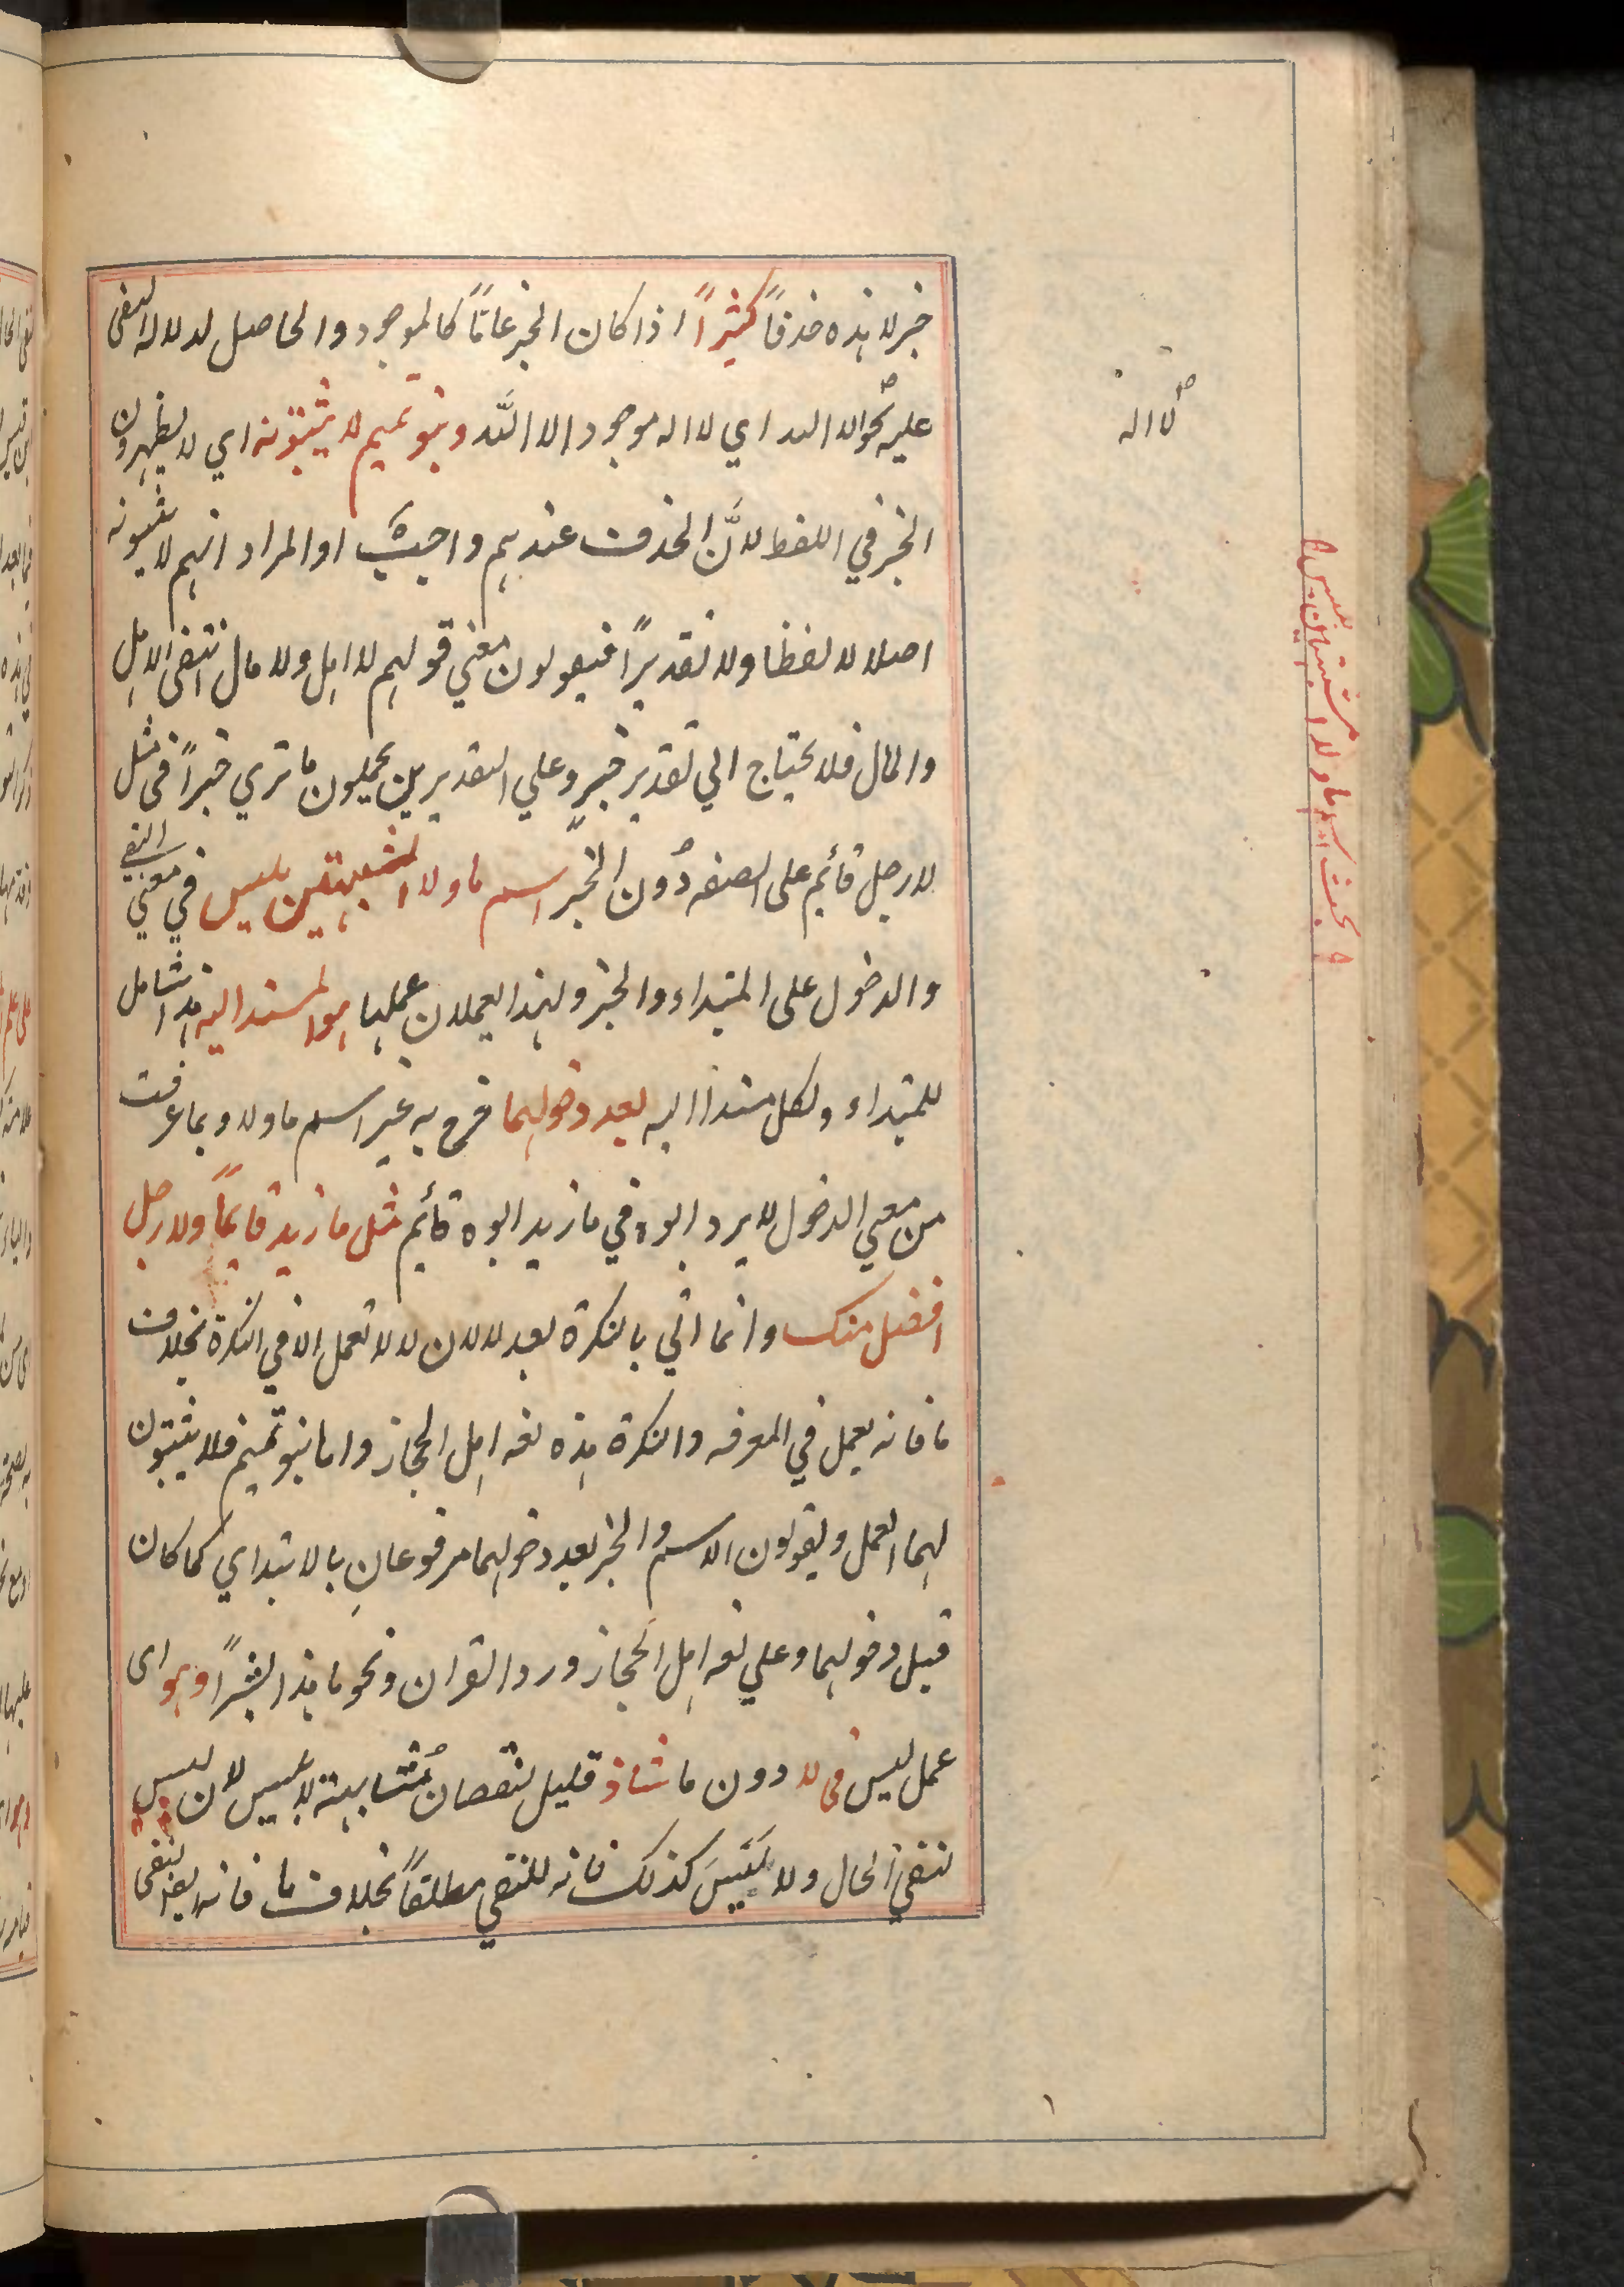 خبر لا هذه حذفاً كثيراً اذا كان الخبر عاماً كالموجود والحاصل لدلالة النفى
عليه نحو الا الله اي لا اله موجود الا الله وبنو تميم لا يثبتونه اي لا يظهرون
الخبر في اللفظ لانَّ الحذف عندهم واجب او المراد انهم لا يثبتونه
اصلا لا لفظا ولا تقديراً فيقولون معني قولهم لا اهل ولا مال انتفى الاهل
والمال فلا يحتاج الي تقدير خبر وعلي التقديرين يحملون ما تري خبراً فى مثل
لا رجل قائم على الصفه دُون الخبر اسم ما ولا المشبهتين بليس في معني النفي
والدخول على المبتداء والخبر ولهذا يعملان عملها هو المسند اليه هذا شامل
للمبتداء ولكل مسند اليه بعد دخولهما خرج به غير اسم ما ولا وبما عرفت
من معني الدخول لا يرد ابوه في ما زيد ابوه قائم مثل ما زيد قايماً ولا رجل
افضل منك وانما اتي بالنكرة بعد لا لان لا لا تعمل الا في النكرة بخلاف
ما فانه يعمل في المعرفه والنكرة هذه لغه اهل الحجاز واما بنو تميم فلا يثبتون
لهما العمل ويقولون الاسم والخبر بعد دخولهما مرفوعانِ بالابتداي كما كان
قبل دخولهما وعلي لغه اهل الحجاز ورد القران ونحو ما هذا بشراً وهو اى
عمل ليس فى لا دون ما شاذ قليل لنقصان مُشابهته لا بليس لان ليس
لنفي الحال ولا لَيسَ كذلك فانه للنفي مطلقاً بخلاف ما فانه ايضا لنفى
لا اله
بحث اسم ما ولا المشبهتين بليس